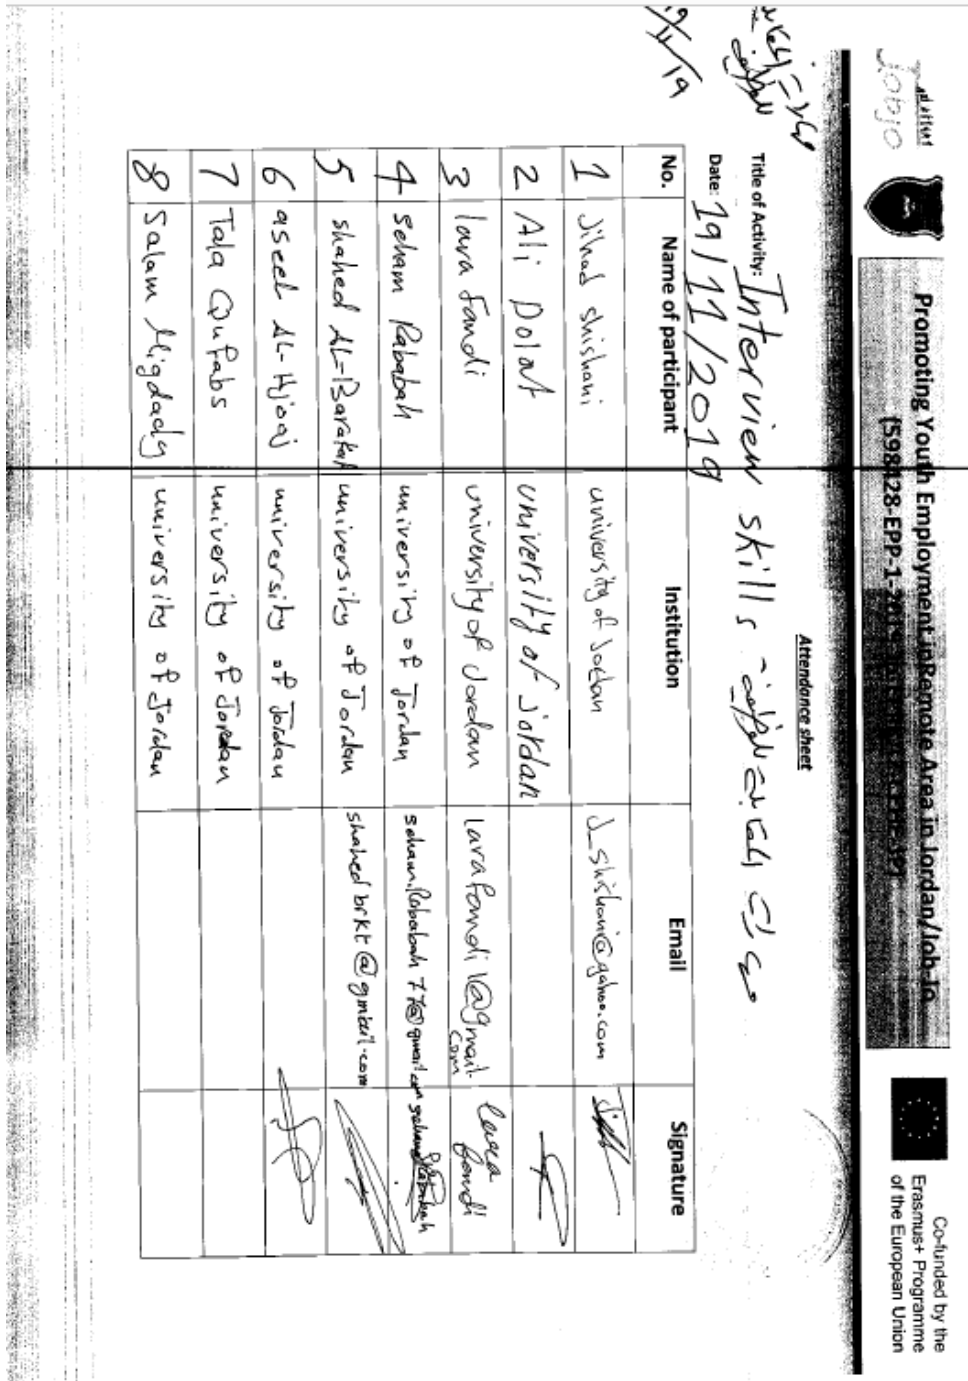 JOBJO
Promoting Youth Employment in Remote Area in Jordan/Job-Jo
(598428-EPP-1-2018-1-JO-EPPKA2-CBHE-JP)
Co-funded by the
Erasmus+ Programme
of the European Union
Attendance sheet
Title of Activity: Interview skills
Date: 19/11/2019
19/11/19
No. Name of participant Institution Email Signature
1 Jihad shishani university of Jordan J_shishani@yahoo.com
2 Ali Dolat university of jordan
3 lara fandi university of Jordan larafandi1@gmail.com lara fandi
4 seham Rababah university of Jordan seham.Rababah77@gmail.com seham Rababah
5 shahed AL-Barakat university of Jordan shahedbrkt@gmail.com
6 aseel AL-Hjooj university of Jordan
7 Tala university of Jordan
8 Salam Migdady university of Jordan